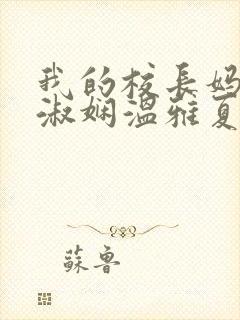 我的校長媽
淑嫻溫雅夏
蘇魯